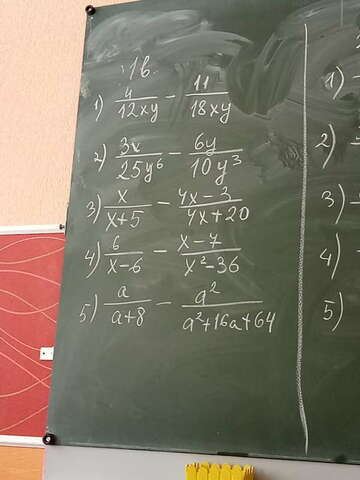 1в.
1) 4/12xy - 11/18xy
2) 3x/25y⁶ - 6y/10y³
3) x/x+5 - 4x-3/4x+20
4) 6/x-6 - x-7/x²-36
5) a/a+8 - a²/a²+16a+64
1)
2)
3)
4)
5)